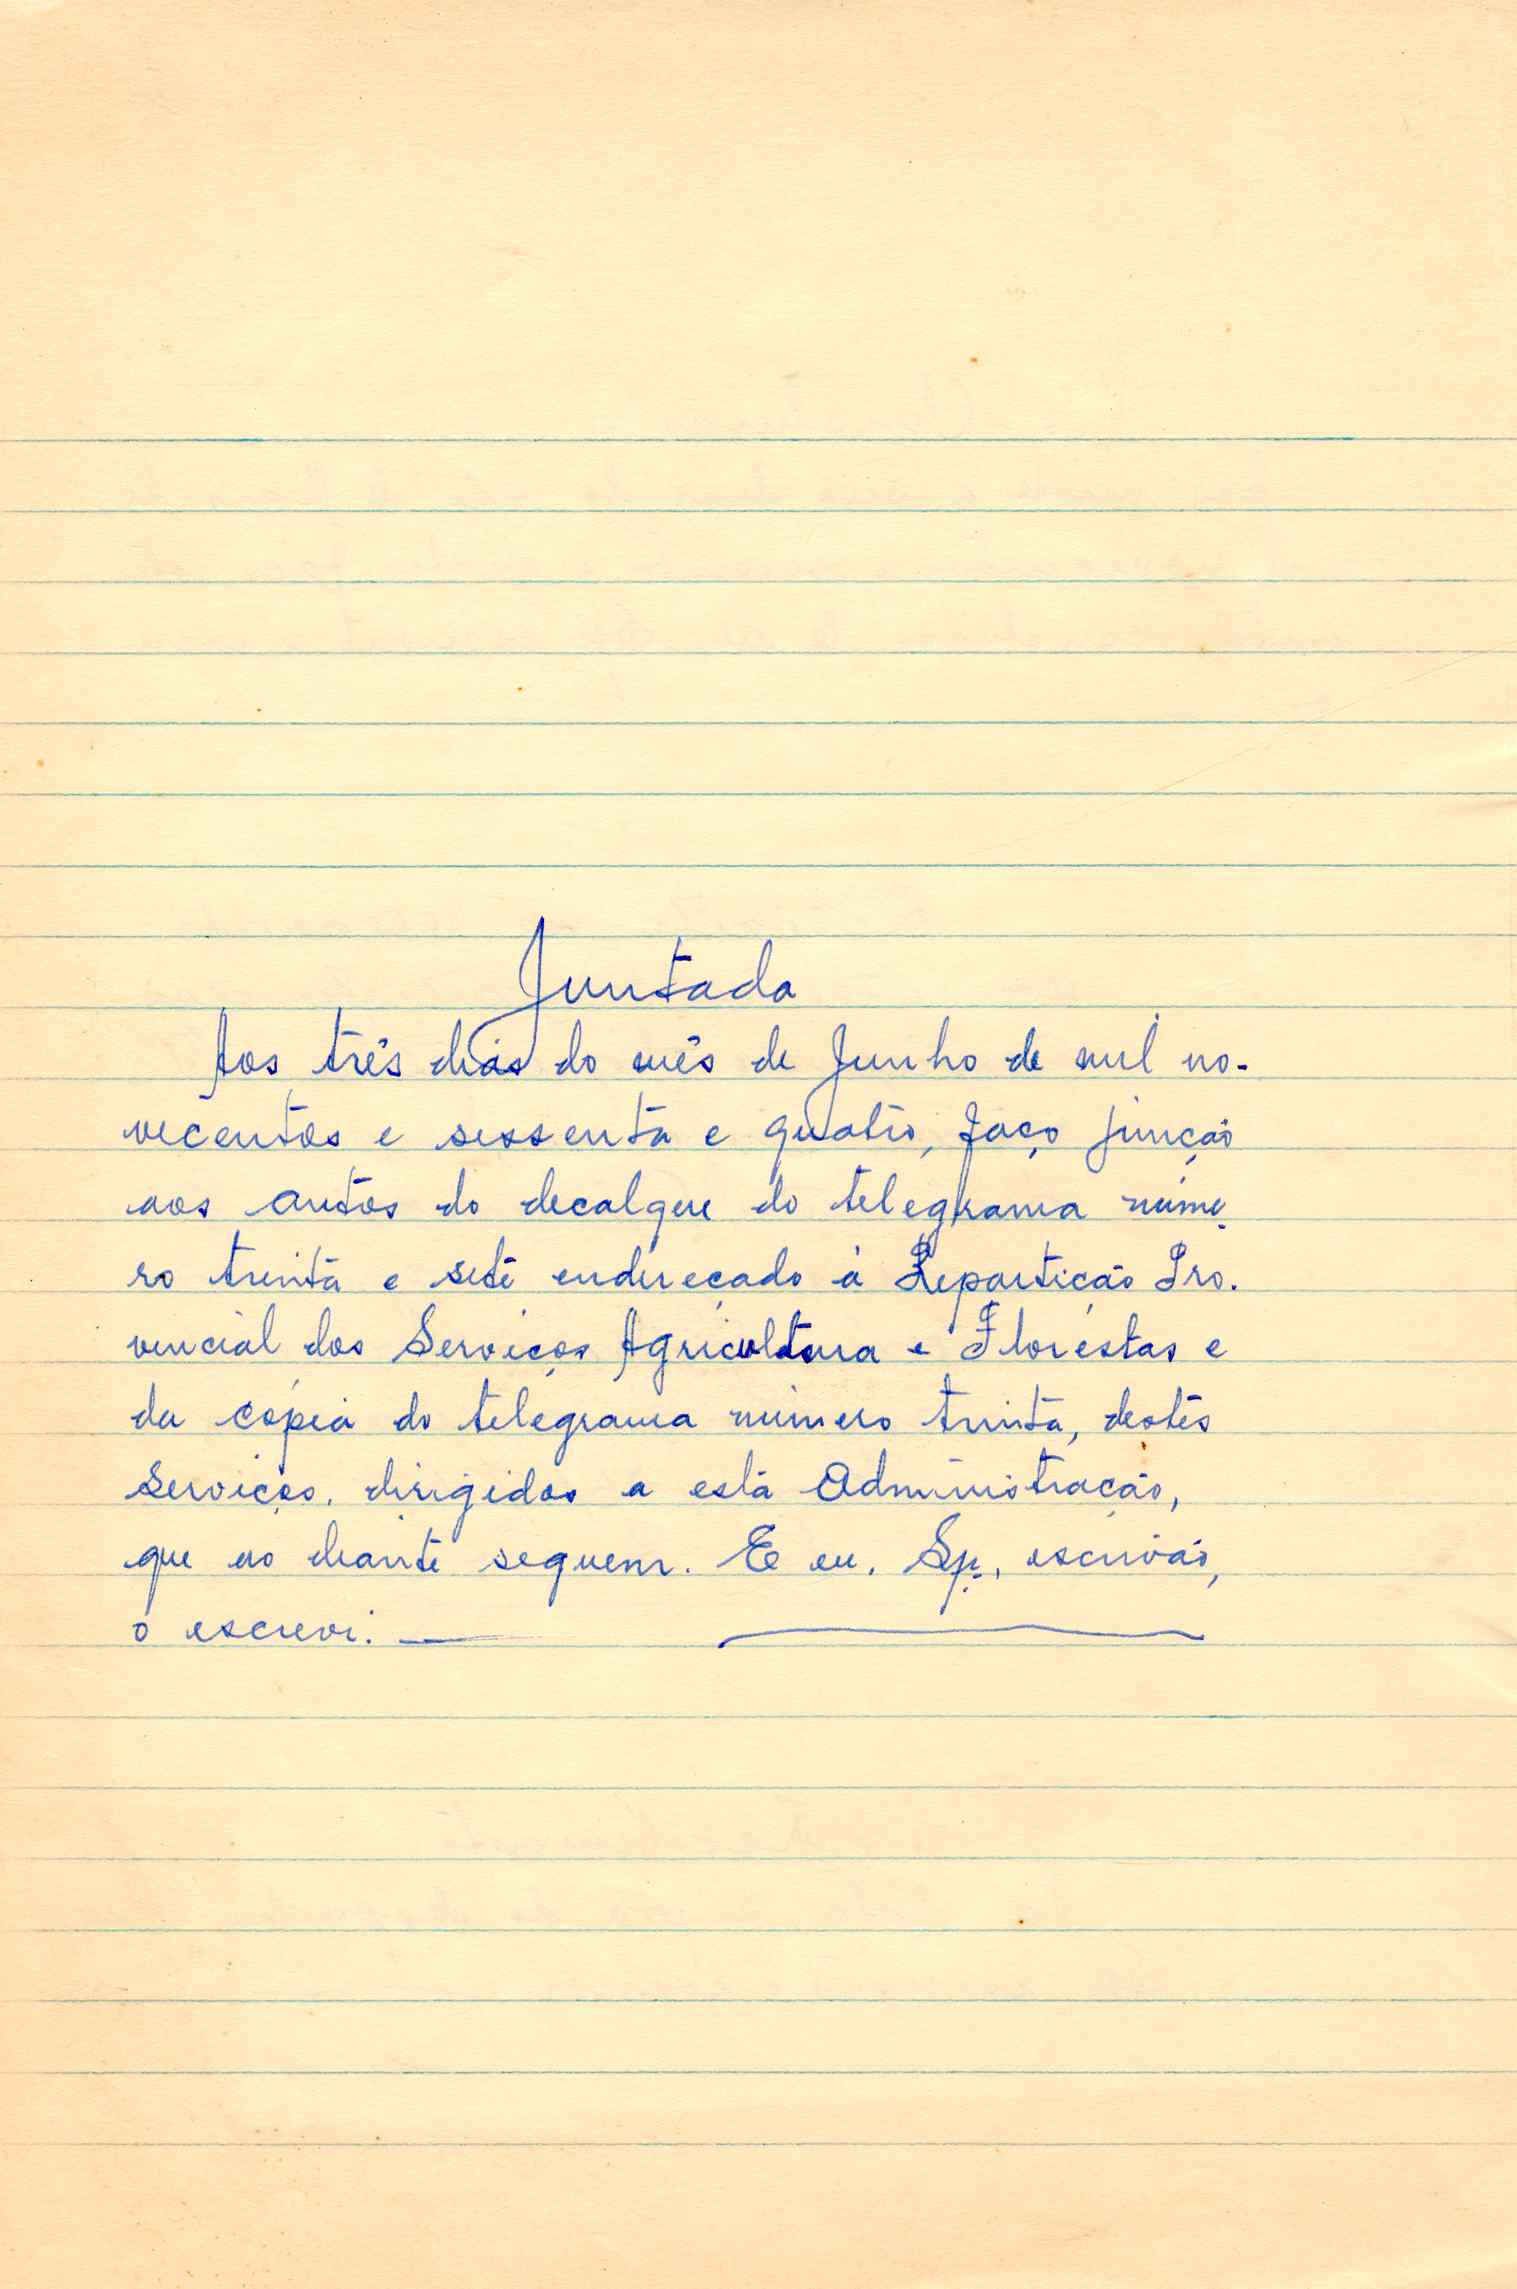 Juntada
Aos três dias do mês de Junho de mil no-
vecentos e sessenta e quatro, faço junção
aos autos do decalque do telegrama núme-
ro trinta e sete endereçado à Repartição Pro-
vincial dos Serviços Agricultura e Florestas e
da cópia do telegrama número trinta, destes
Serviços, dirigidos a esta Administração,
que ao diante seguem. E eu, , escrivão,
o escrevi.